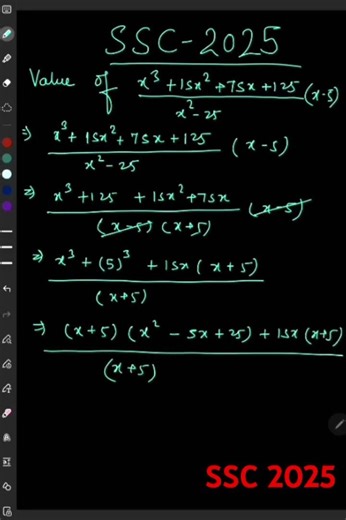 SSC-2025
Value of (x³ + 15x² + 75x + 125)/(x² - 25) (x-5)
⇒ (x³ + 15x² + 75x + 125)/(x² - 25) (x-5)
⇒ (x³ + 125 + 15x² + 75x)/((x-5)(x+5)) (x-5)
⇒ (x³ + (5)³ + 15x(x+5))/(x+5)
⇒ ((x+5)(x² - 5x + 25) + 15x(x+5))/(x+5)
SSC 2025